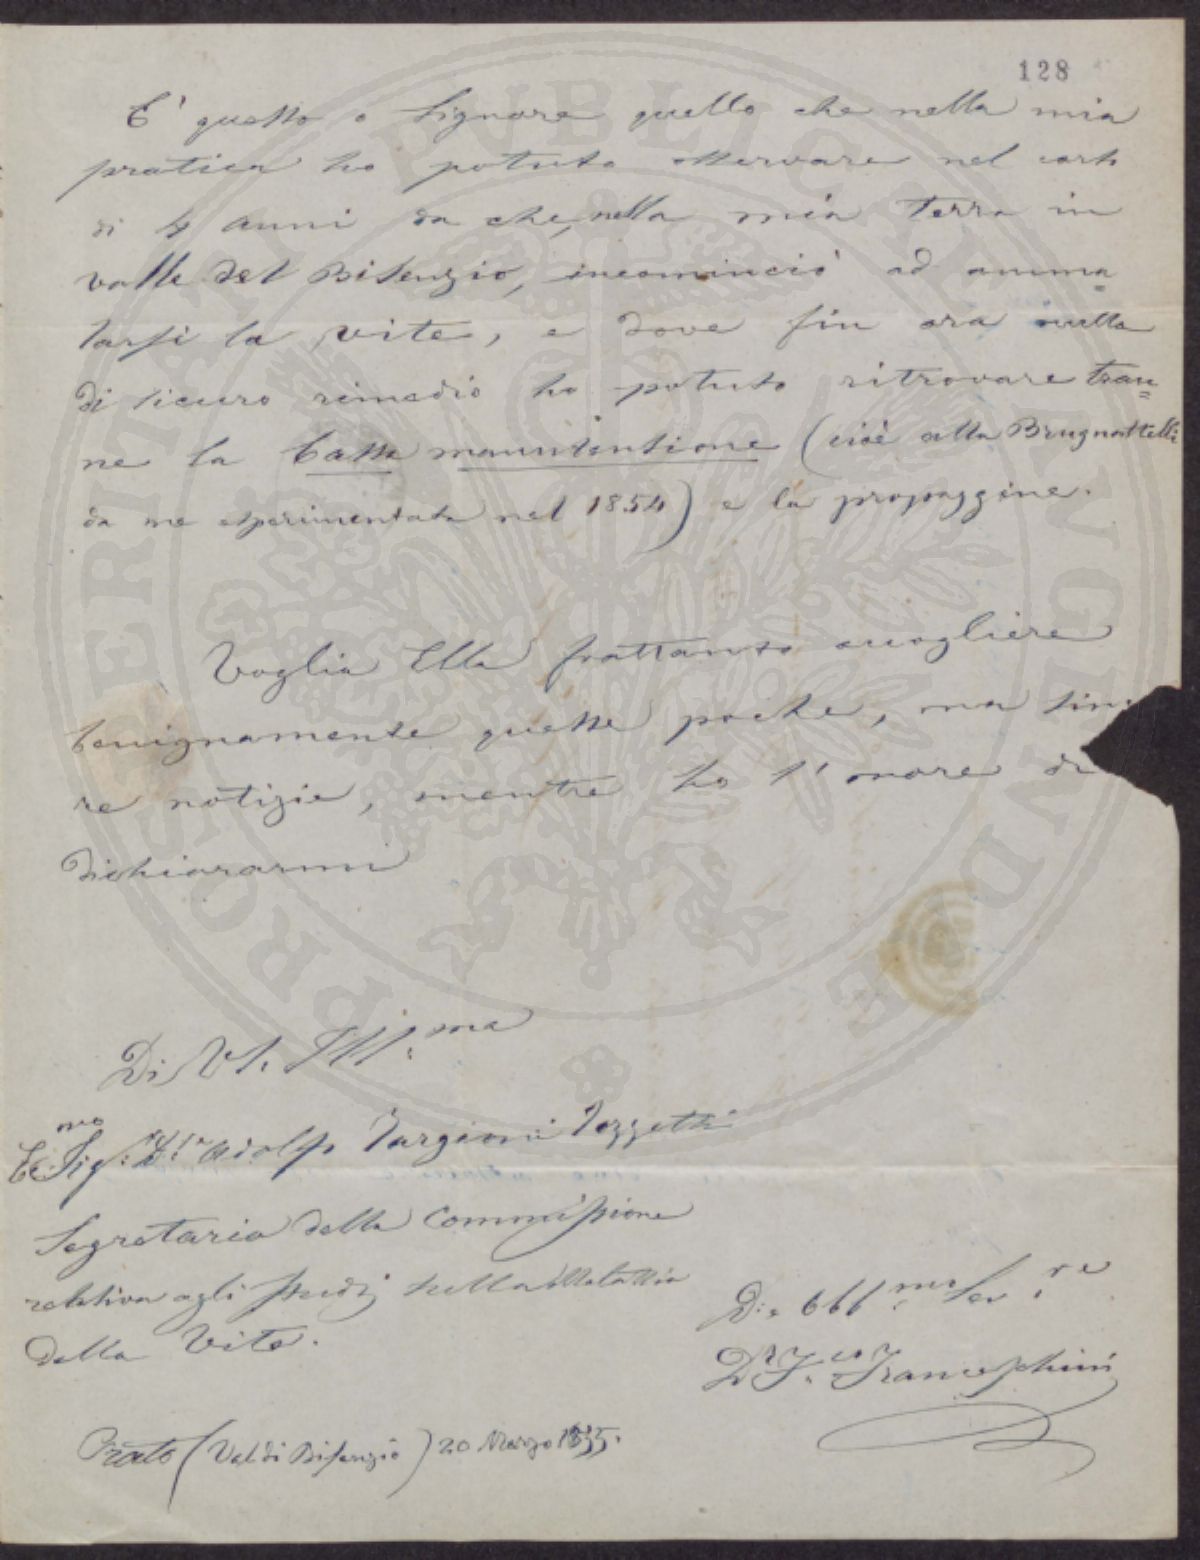 128
E' questo o Signore quello che nella mia
pratica ho potuto osservare nel corso
di 4 anni da che, nella mia terra in
valle del Bisenzio, incominciò ad amma=
larsi la vite, e dove fin ora nulla
di sicuro rimedio ho potuto ritrovare tran=
ne la bassa manutensione (cioè alla Brugnattelli
da me esperimentata nel 1854) e la propaggine.
Voglia Ella frattanto accogliere
benignamente queste poche, ma sin
re notizie, mentre ho l'onore di
dichiararmi
Di VS. Ill:ma
Sig: Dr Adolfo Targioni Tozzetti
Segretario della Commissione
relativa agli studj sulla Malattia
della Vite.
Obb:mo Ser:re
Dr F:co Franceschini
Prato (Val di Bisenzio) 20 Marzo 1855.
PROSPERITATI PUBLICAE AUGENDAE